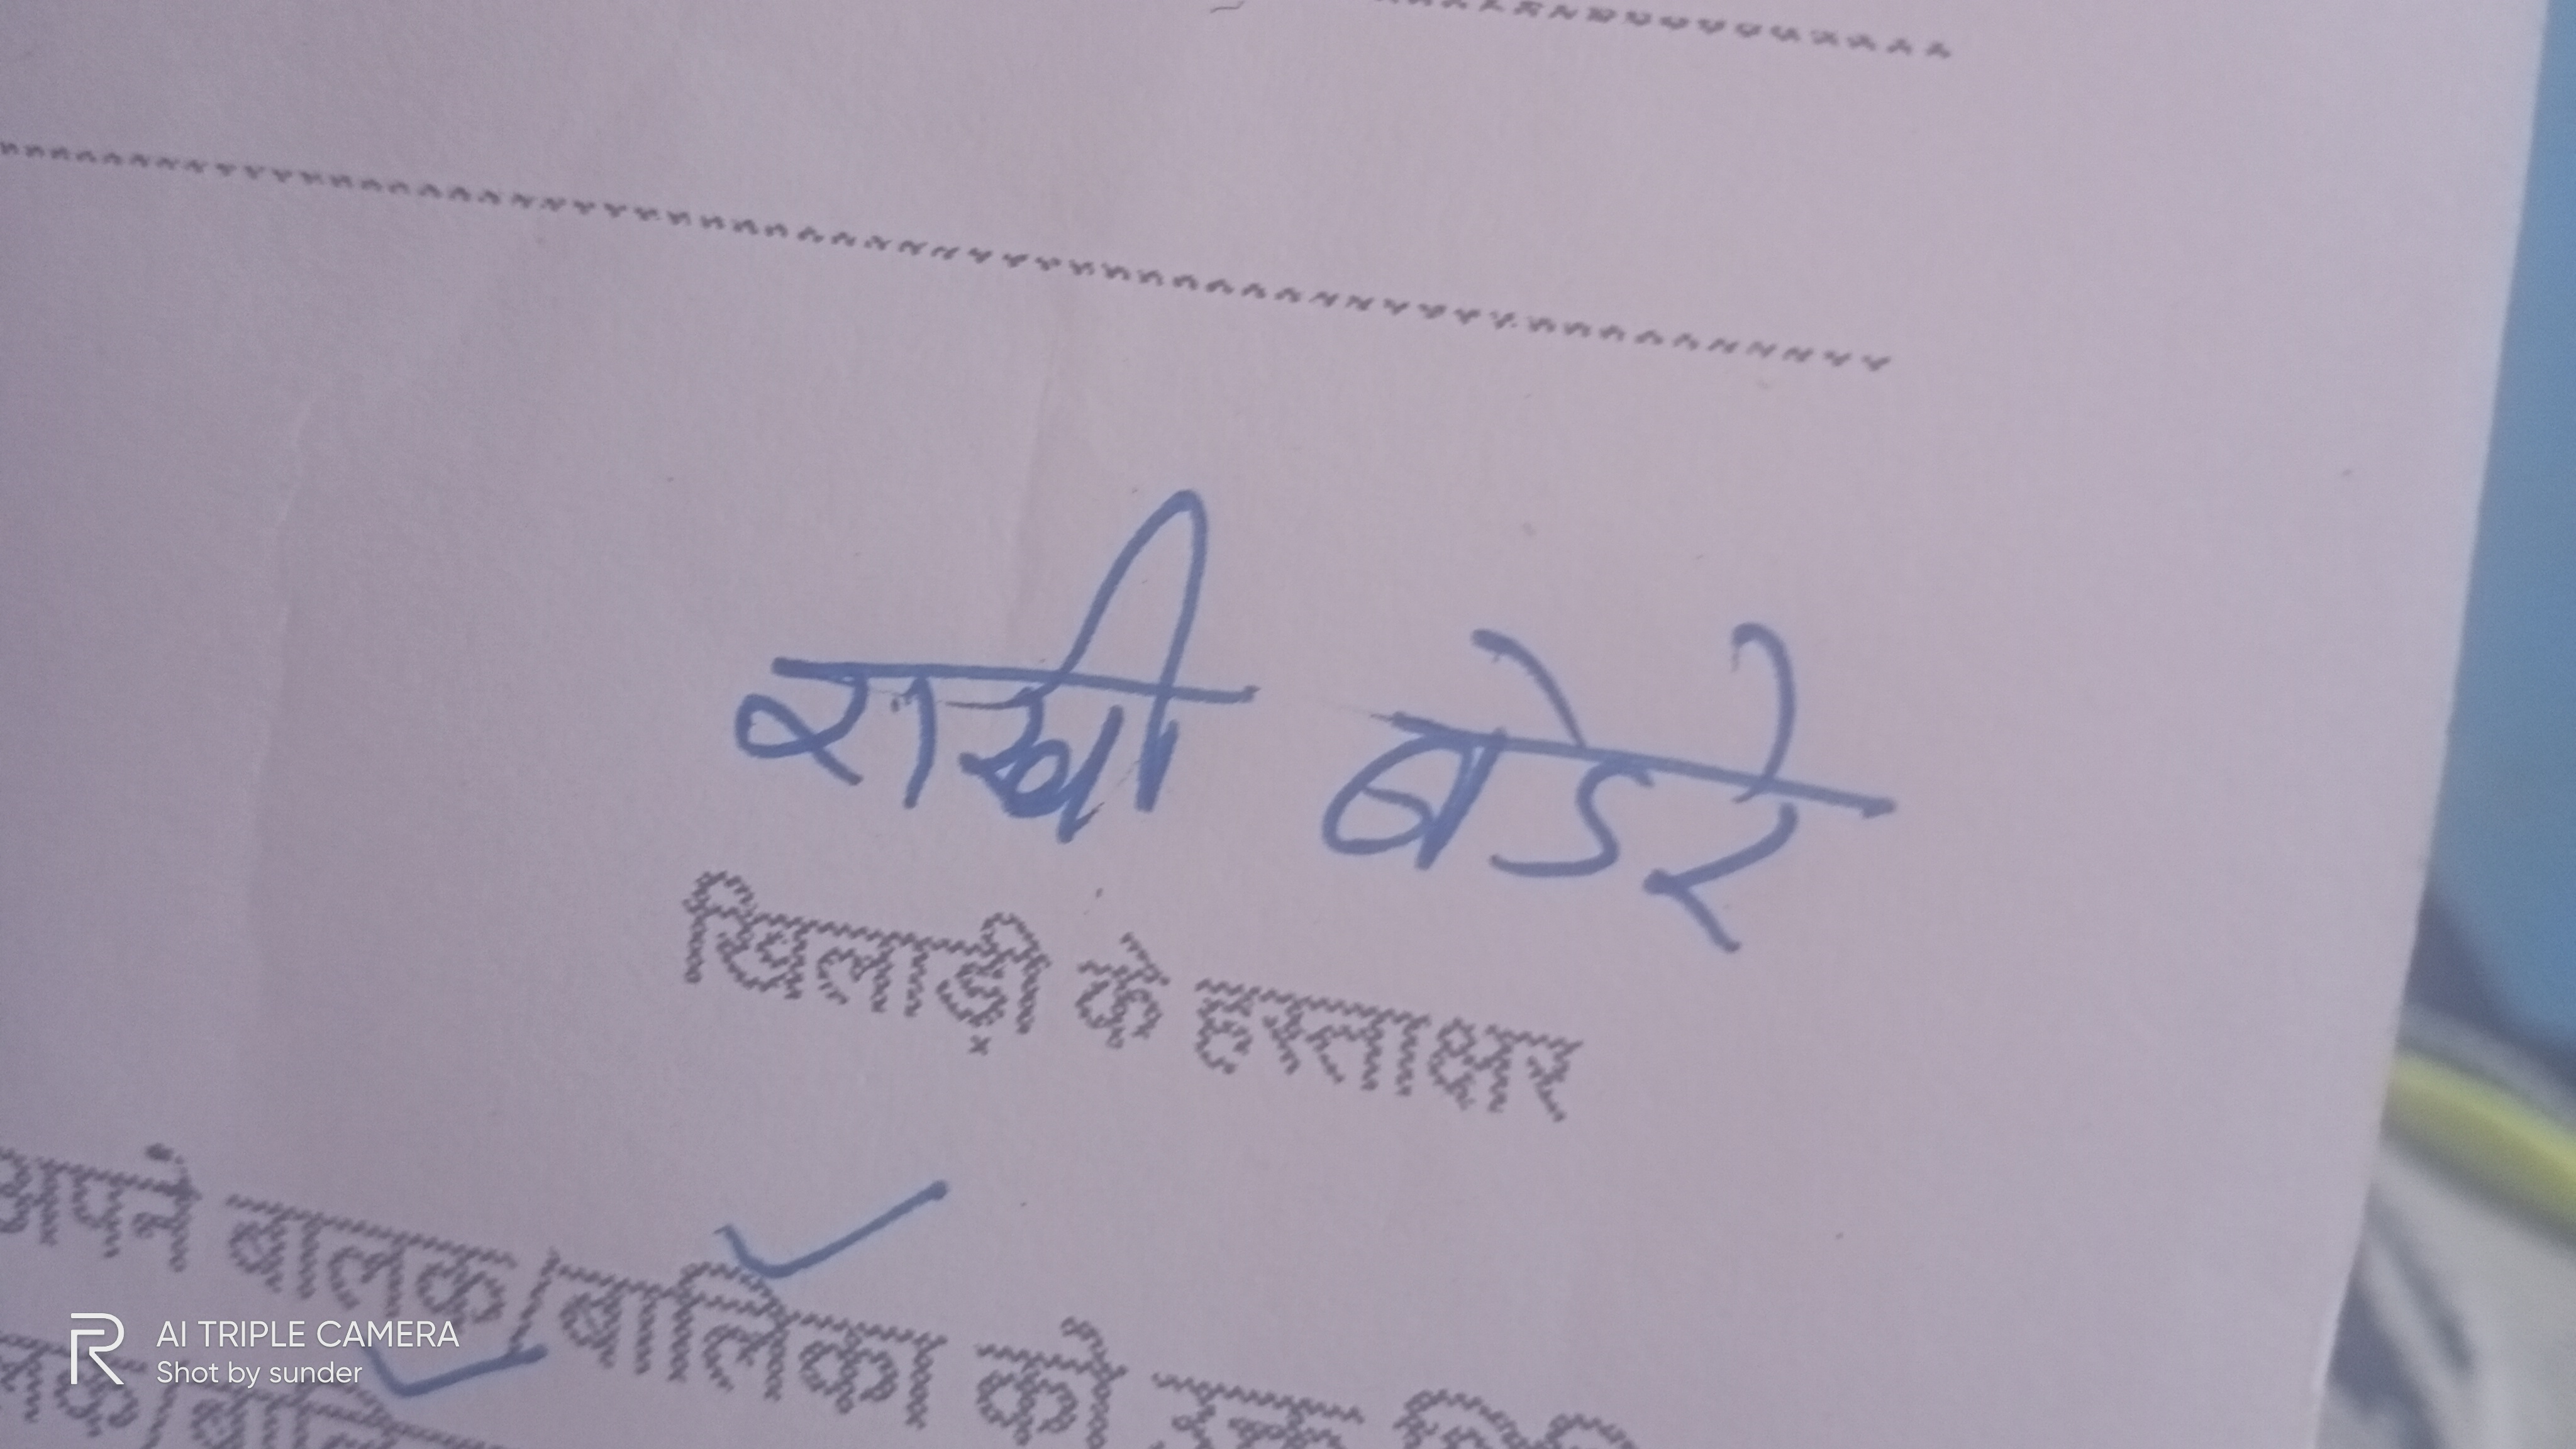 राखी बडेरे
खिलाड़ी के हस्ताक्षर
अपने बालक/बालिका को उक्त
AI TRIPLE CAMERA
Shot by sunder